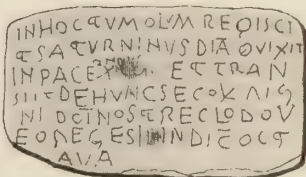 IN HOC TVMOLVM REQISCI
T SATVRNINVS DIA QVI XIT
IN PACE ET TRAN
SIIT DE HVNC SECOLV
NI DC NOSTRE CLODOV
EO REGES INDIC OCT
AVA